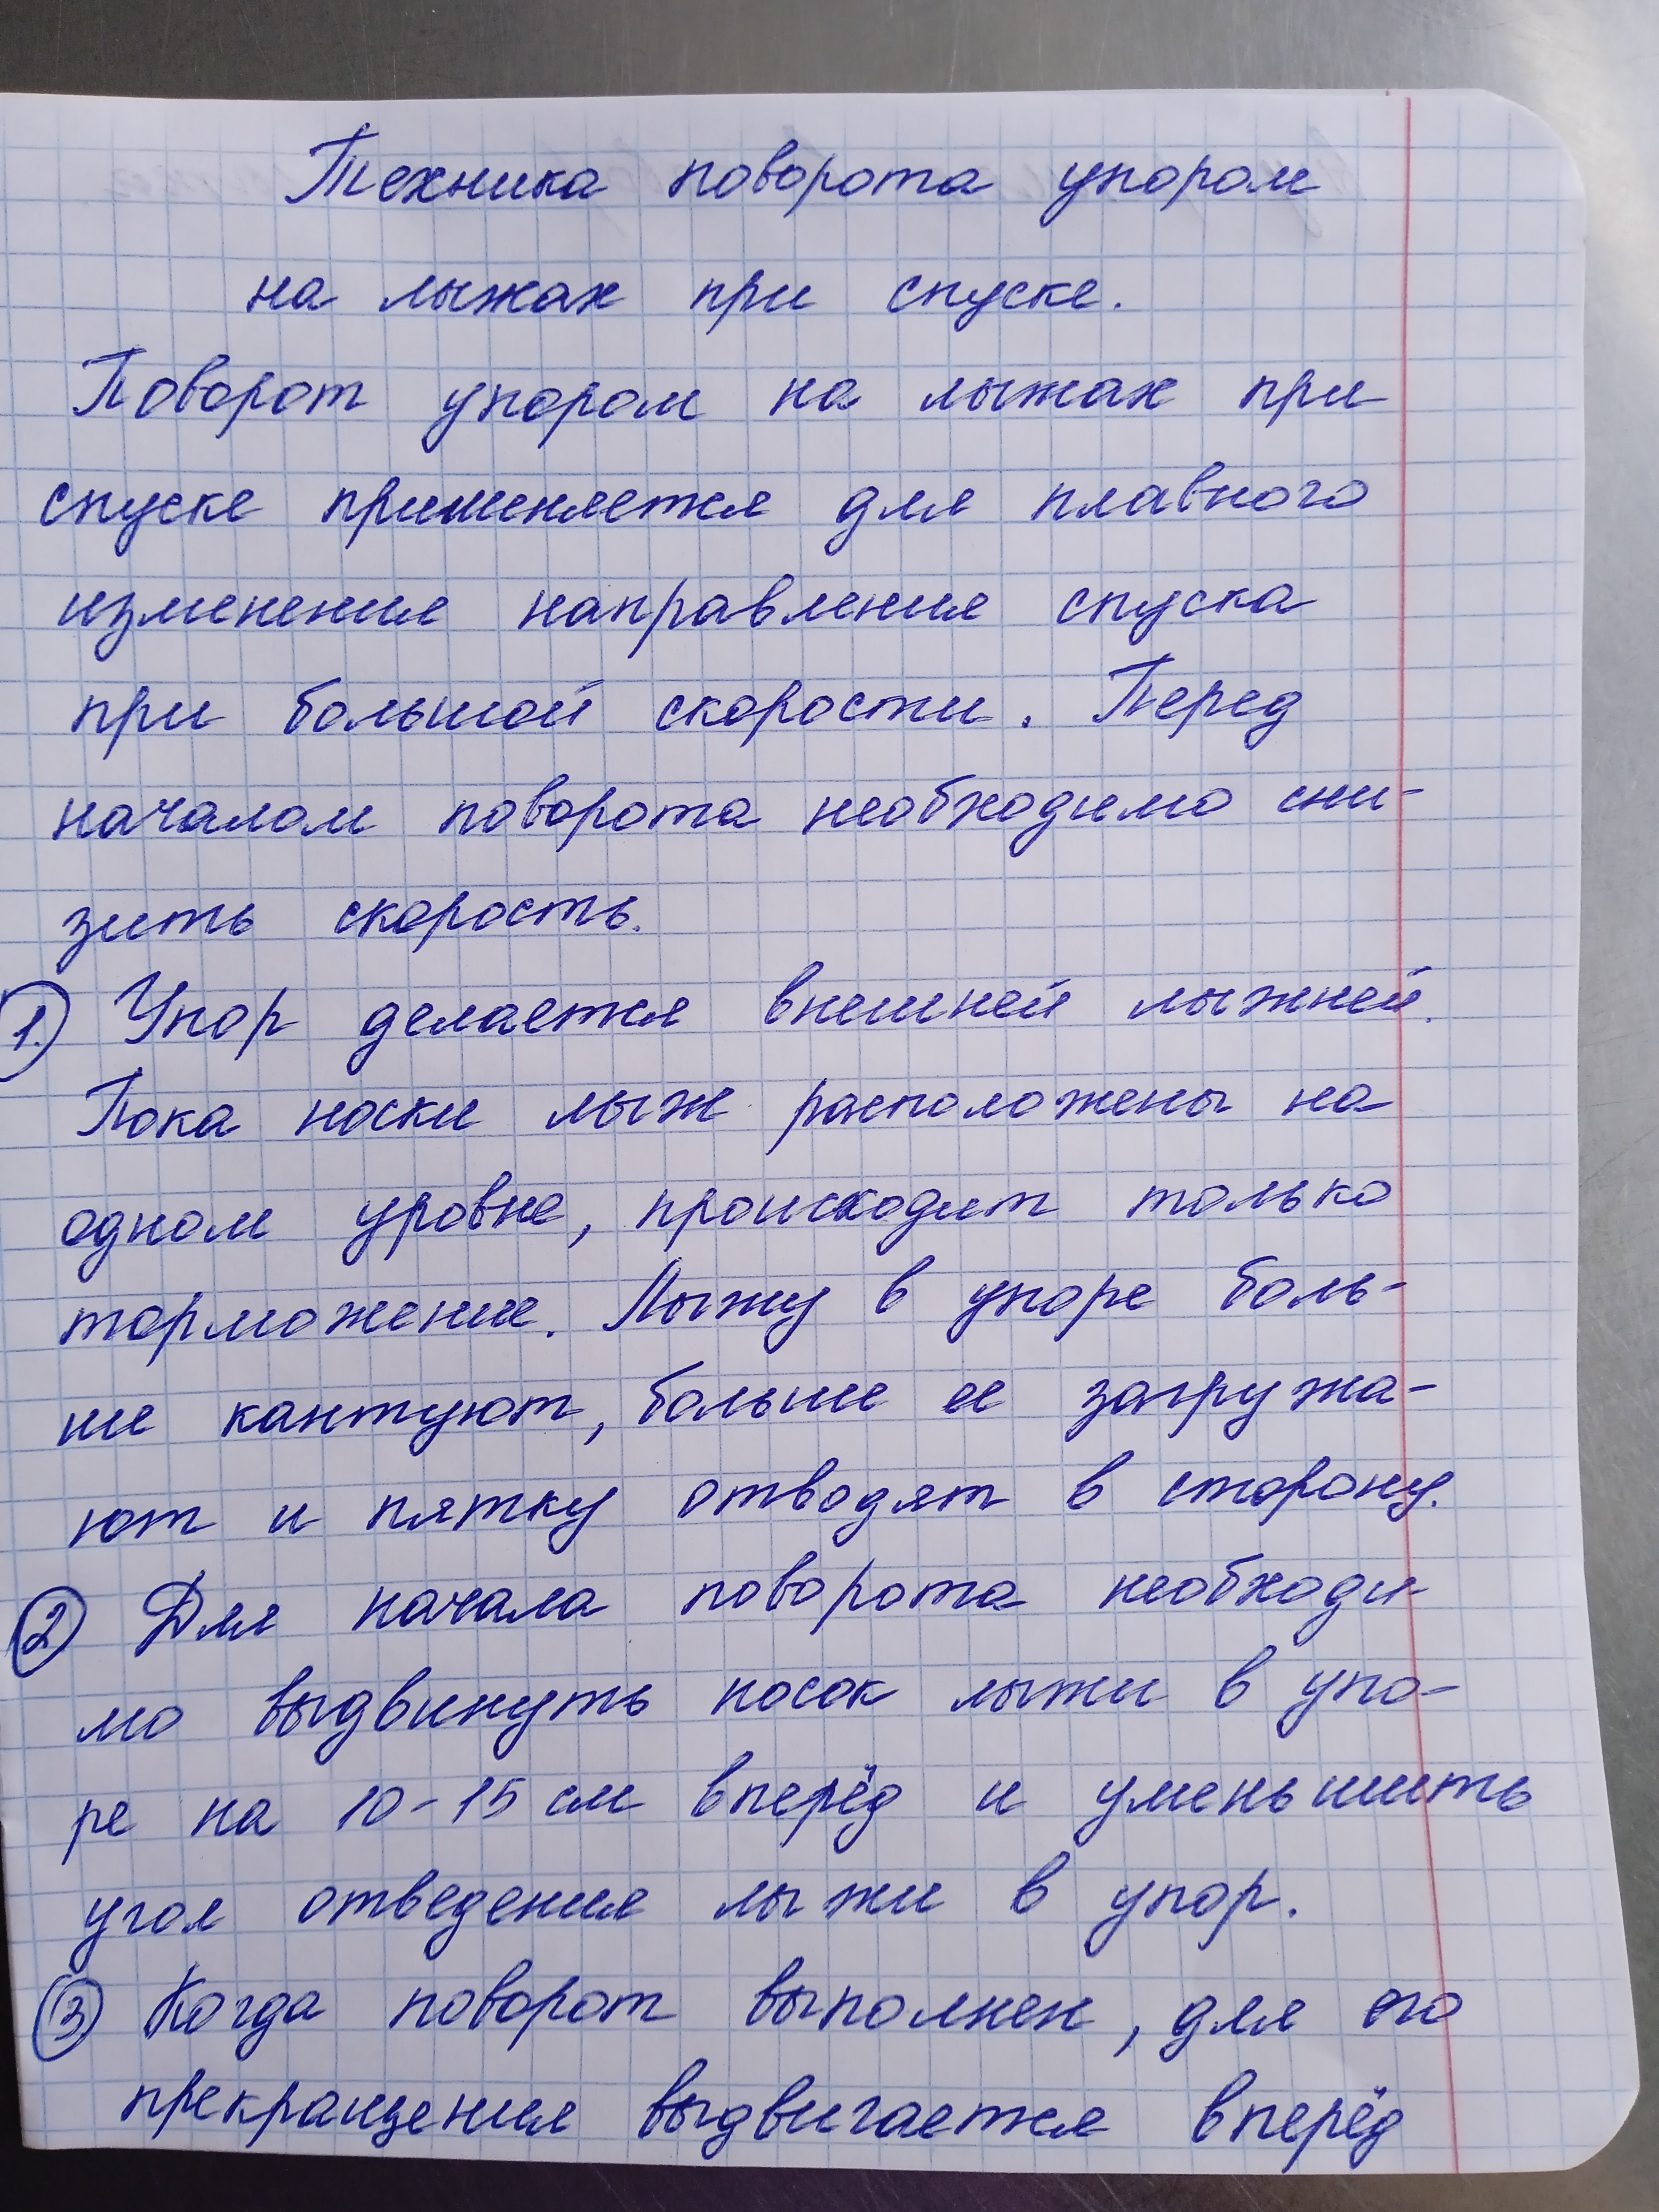 Техника поворота упором
на лыжах при спуске.
Поворот упором на лыжах при
спуске применяется для плавного
изменения направления спуска
при большой скорости. Перед
началом поворота необходимо сни-
зить скорость.
1. Упор делается внешней лыжней.
Пока носки лыж расположены на
одном уровне, происходит только
торможение. Лыжу в упоре боль-
ше кантуют, больше ее загружа-
ют и пятку отводят в сторону.
2 Для начала поворота необходи-
мо выдвинуть носок лыжи в упо-
ре на 10-15 см вперёд и уменьшить
угол отведения лыжи в упор.
3 Когда поворот выполнен, для его
прекращения выдвигается вперёд